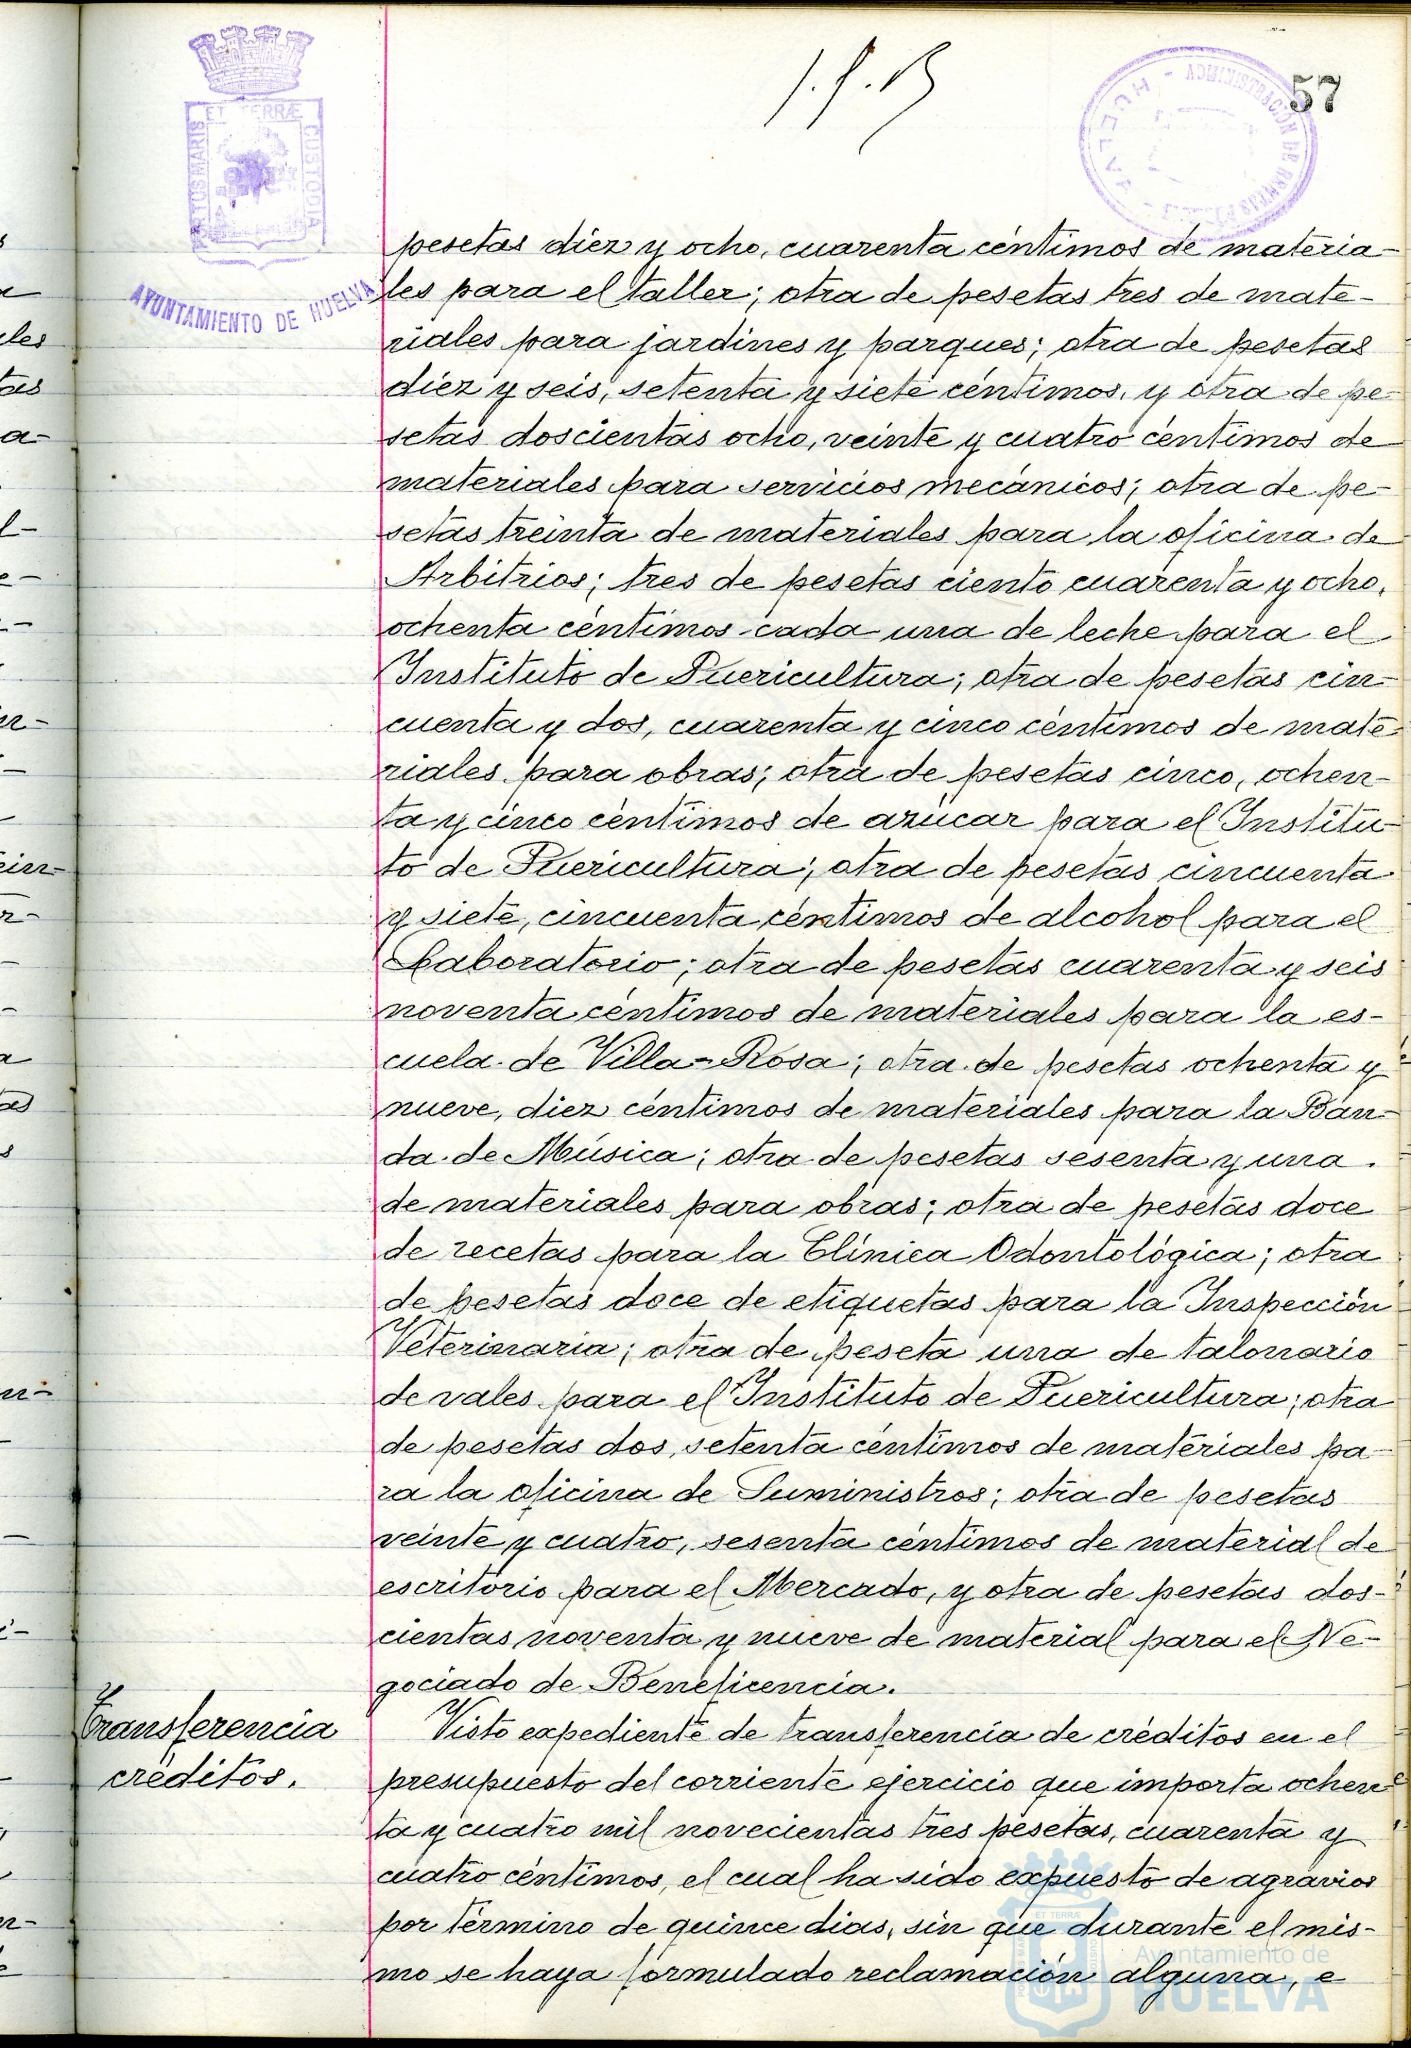 57
ET TERRÆ
PORTUS MARIS
CUSTODIA
AYUNTAMIENTO DE HUELVA
HUELVA
pesetas diez y ocho, cuarenta céntimos de materia-
les para el taller; otra de pesetas tres de mate-
riales para jardines y parques; otra de pesetas
diez y seis, setenta y siete céntimos, y otra de pe-
setas doscientas ocho, veinte y cuatro céntimos de
materiales para servicios mecánicos; otra de pe-
setas treinta de materiales para la oficina de
Arbitrios; tres de pesetas ciento cuarenta y ocho,
ochenta céntimos cada una de leche para el
Instituto de Puericultura; otra de pesetas cin-
cuenta y dos, cuarenta y cinco céntimos de mate-
riales para obras; otra de pesetas cinco, ochen-
ta y cinco céntimos de azúcar para el Institu-
to de Puericultura; otra de pesetas cincuenta
y siete, cincuenta céntimos de alcohol para el
Laboratorio; otra de pesetas cuarenta y seis
noventa céntimos de materiales para la es-
cuela de Villa-Rosa; otra de pesetas ochenta y
nueve, diez céntimos de materiales para la Ban-
da de Música; otra de pesetas sesenta y una
de materiales para obras; otra de pesetas doce
de recetas para la Clínica Odontológica; otra
de pesetas doce de etiquetas para la Inspección
Veterinaria; otra de peseta una de talonario
de vales para el Instituto de Puericultura; otra
de pesetas dos, setenta céntimos de materiales pa-
ra la oficina de Suministros; otra de pesetas
veinte y cuatro, sesenta céntimos de material de
escritorio para el Mercado, y otra de pesetas dos-
cientas noventa y nueve de material para el Ne-
gociado de Beneficencia.
Transferencia
créditos.
Visto expediente de transferencia de créditos en el
presupuesto del corriente ejercicio que importa ochen-
ta y cuatro mil novecientas tres pesetas, cuarenta y
cuatro céntimos, el cual ha sido expuesto de agravios
por término de quince dias, sin que durante el mis-
mo se haya formulado reclamación alguna, e
Ayuntamiento de
HUELVA